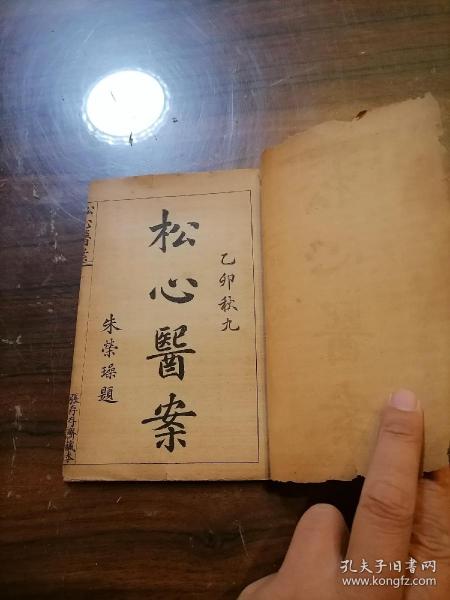 乙卯秋九
松心醫案
朱榮璪題
松心醫案
張存存齋藏本
孔夫子旧书网
www.kongfz.com